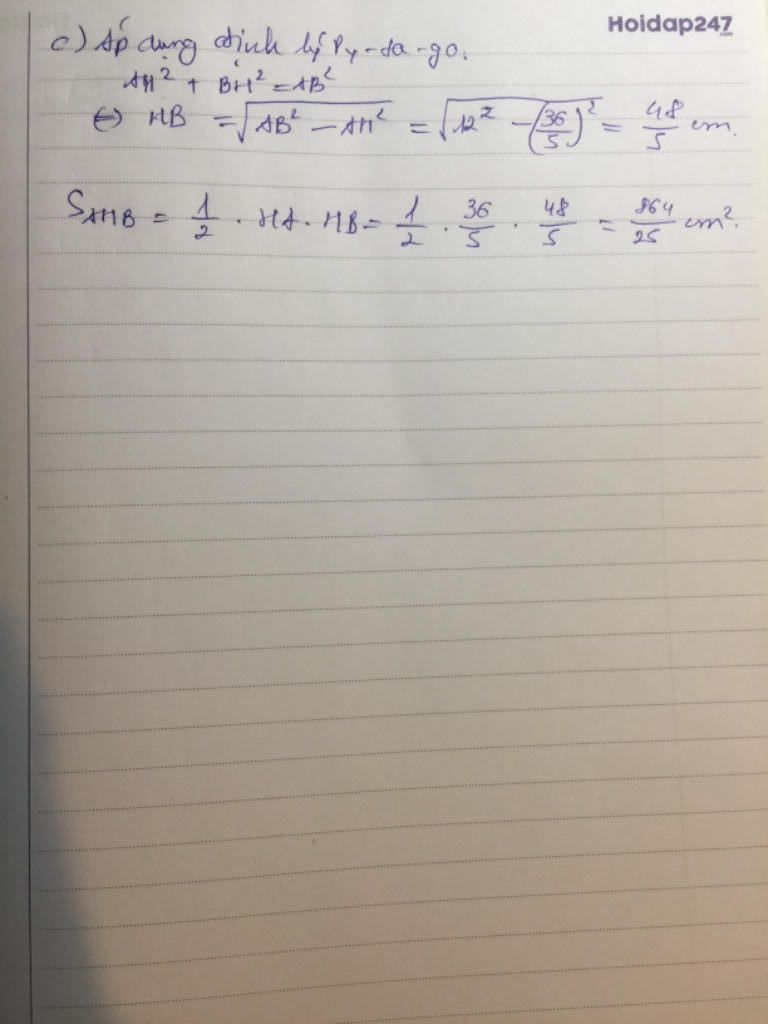 Hoidap247
.com
c) Áp dụng định lý Py-ta-go.
AH² + BH² = AB²
⇔ HB = √(AB² – AH²) = √(12² – (36/5)²) = 48/5 cm.
S_AHB = 1/2 . HA . HB = 1/2 . 36/5 . 48/5 = 864/25 cm².